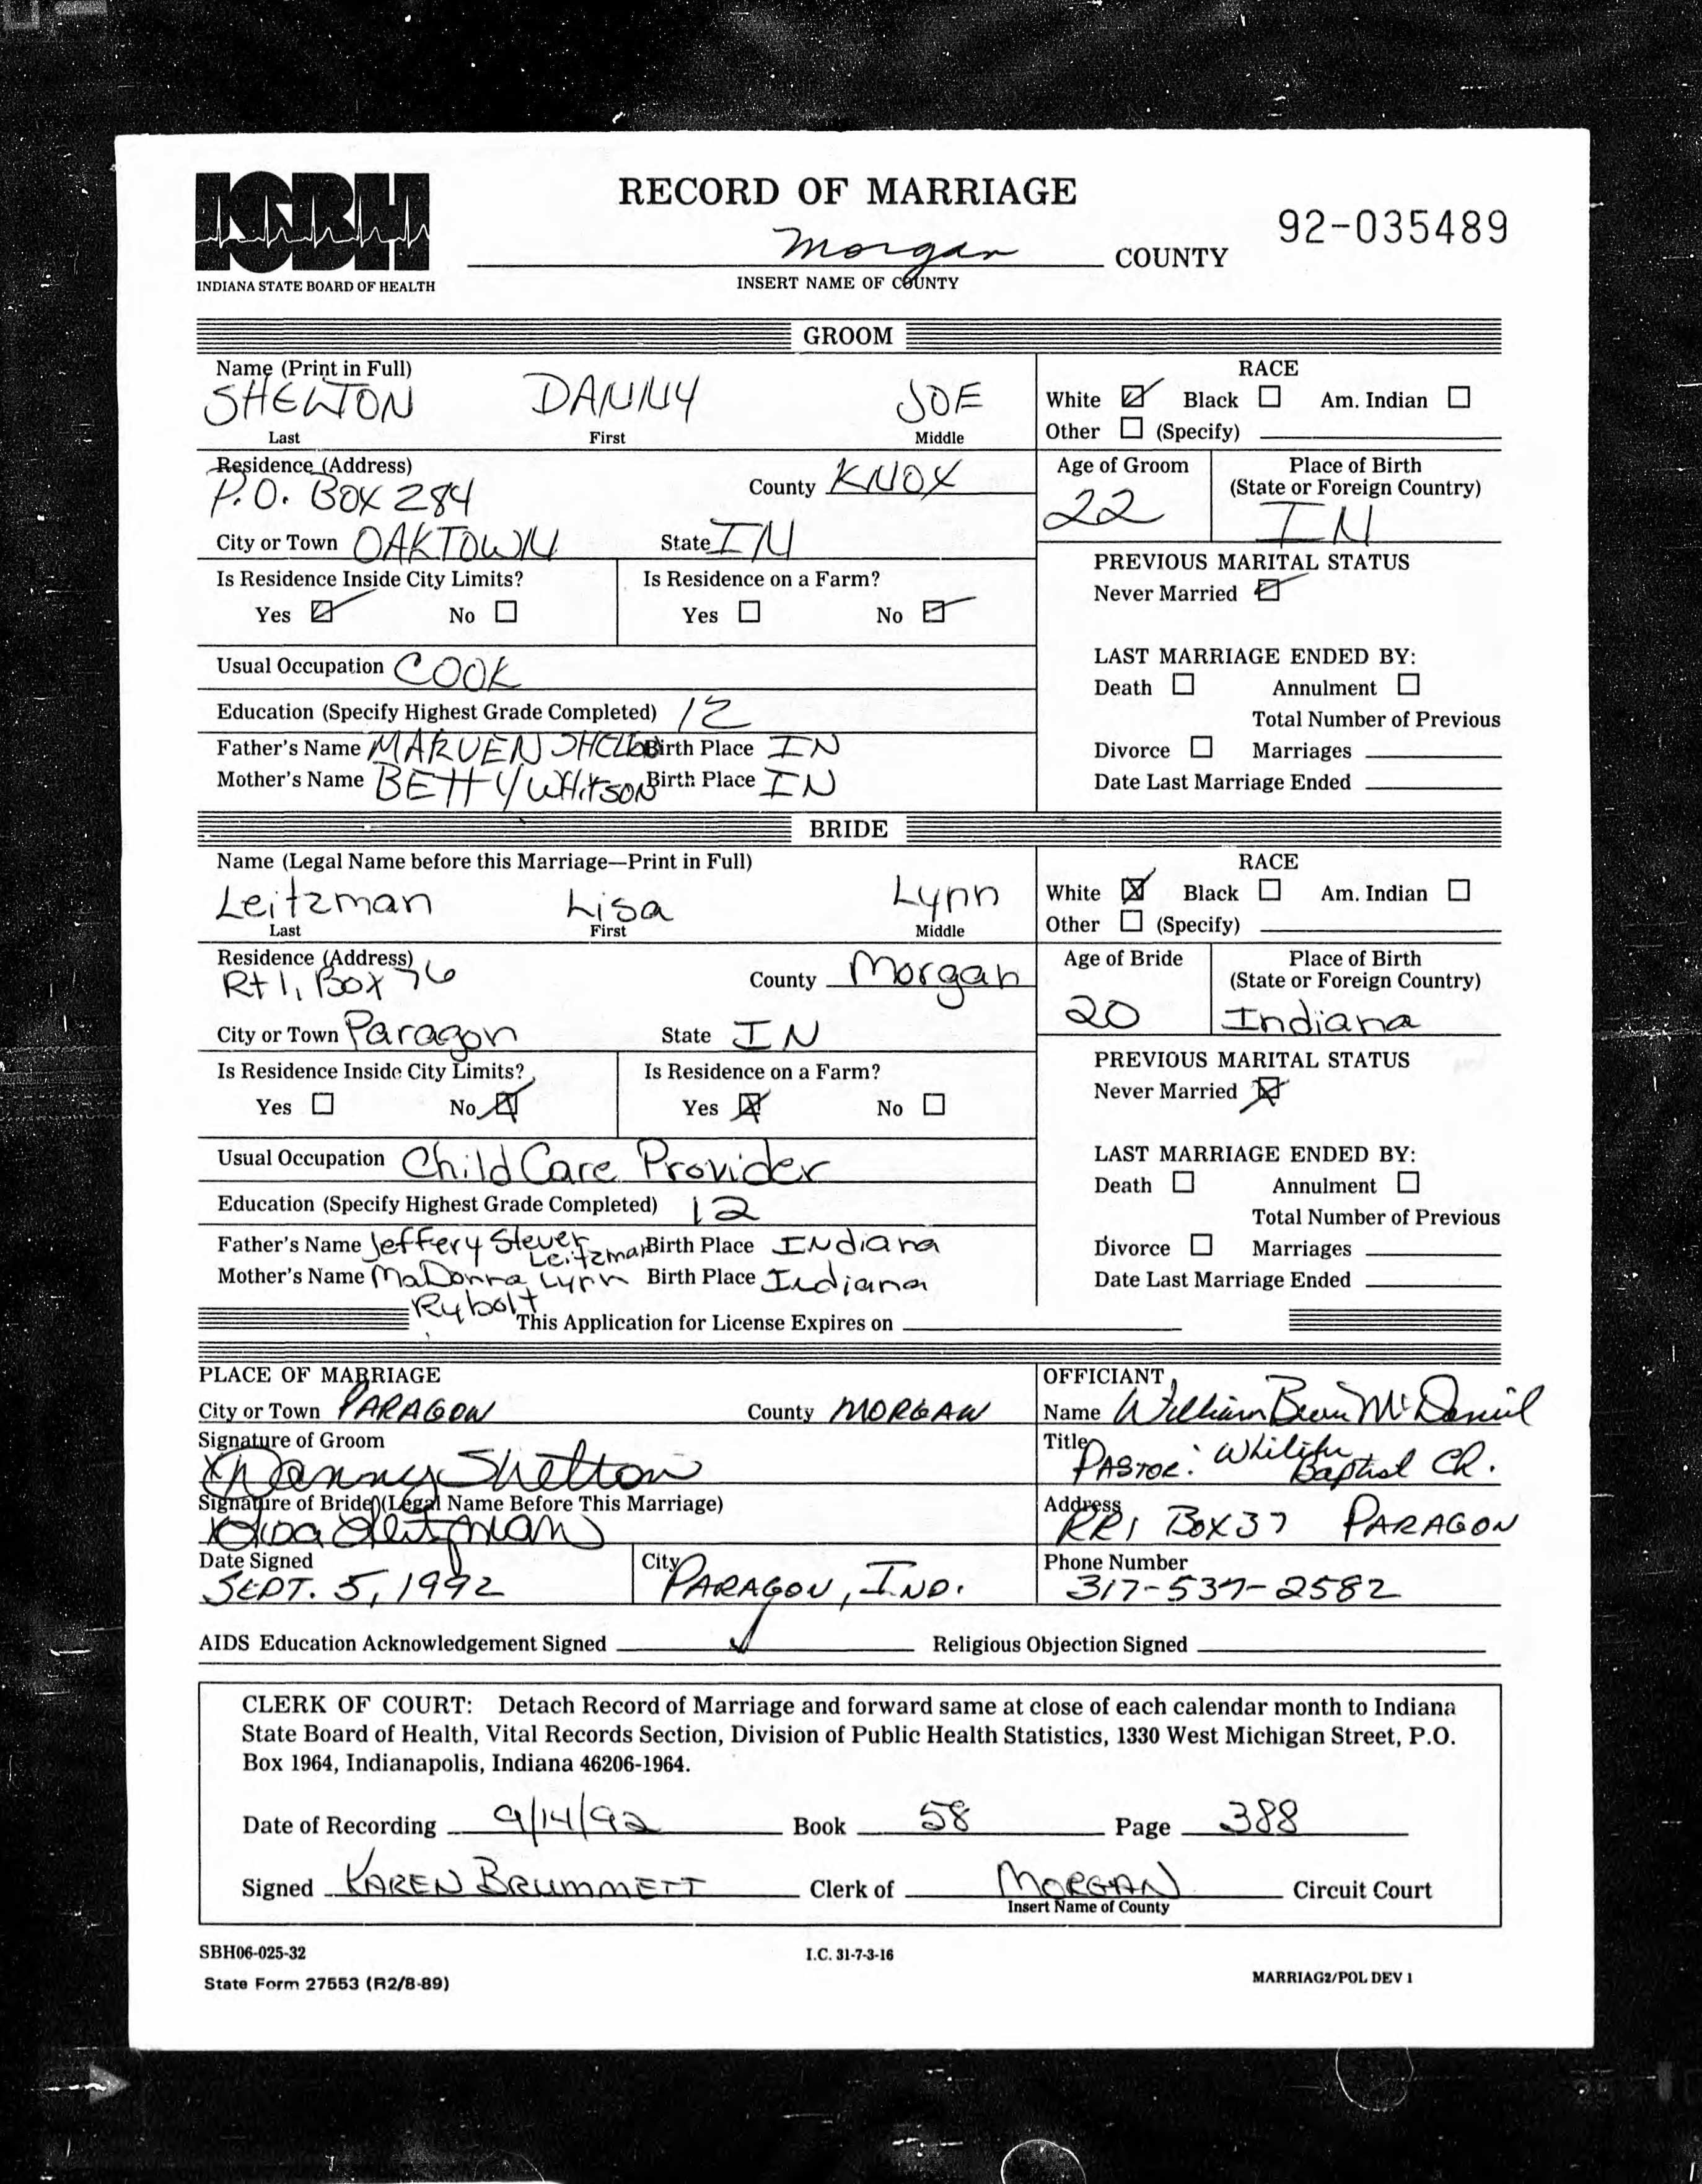 RECORD OF MARRIAGE
92-035489
ISBH
Morgan COUNTY
INDIANA STATE BOARD OF HEALTH
INSERT NAME OF COUNTY
GROOM
Name (Print in Full)
SHELTON DANNY JOE
Last First Middle
RACE
White Black Am. Indian
Other (Specify)
Residence (Address)
P.O. BOX 284
County KNOX
City or Town OAKTOWN State IN
Age of Groom
22
Place of Birth
(State or Foreign Country)
IN
Is Residence Inside City Limits?
Yes No
Is Residence on a Farm?
Yes No
PREVIOUS MARITAL STATUS
Never Married
Usual Occupation COOK
Education (Specify Highest Grade Completed) 12
Father's Name MARVEN Birth Place IN
Mother's Name BETTY WHITSON Birth Place IN
LAST MARRIAGE ENDED BY:
Death Annulment
Total Number of Previous
Divorce Marriages
Date Last Marriage Ended
BRIDE
Name (Legal Name before this Marriage—Print in Full)
Leitzman Lisa Lynn
Last First Middle
RACE
White Black Am. Indian
Other (Specify)
Residence (Address)
Rt 1, Box 76
County Morgan
City or Town Paragon State IN
Age of Bride
20
Place of Birth
(State or Foreign Country)
Indiana
Is Residence Inside City Limits?
Yes No
Is Residence on a Farm?
Yes No
PREVIOUS MARITAL STATUS
Never Married
Usual Occupation Child Care Provider
Education (Specify Highest Grade Completed) 12
Father's Name Jeffery Birth Place Indiana
Leitzman
Mother's Name MaDonna Lynn Birth Place Indiana
Rybolt
LAST MARRIAGE ENDED BY:
Death Annulment
Total Number of Previous
Divorce Marriages
Date Last Marriage Ended
This Application for License Expires on
PLACE OF MARRIAGE
City or Town PARAGON County MORGAN
Signature of Groom
X Danny Shelton
Signature of Bride (Legal Name Before This Marriage)
X Lisa Leitzman
Date Signed
SEPT. 5, 1992
City
PARAGON, IND.
OFFICIANT
Name William McDaniel
Title
PASTOR: Baptist Ch.
Address
RR1 BOX 37 PARAGON
Phone Number
317-537-2582
AIDS Education Acknowledgement Signed ✓ Religious Objection Signed
CLERK OF COURT: Detach Record of Marriage and forward same at close of each calendar month to Indiana
State Board of Health, Vital Records Section, Division of Public Health Statistics, 1330 West Michigan Street, P.O.
Box 1964, Indianapolis, Indiana 46206-1964.
Date of Recording 9/14/92 Book 58 Page 388
Signed KAREN BRUMMETT Clerk of MORGAN Circuit Court
Insert Name of County
SBH06-025-32
I.C. 31-7-3-16
State Form 27553 (R2/8-89)
MARRIAG2/POL DEV 1